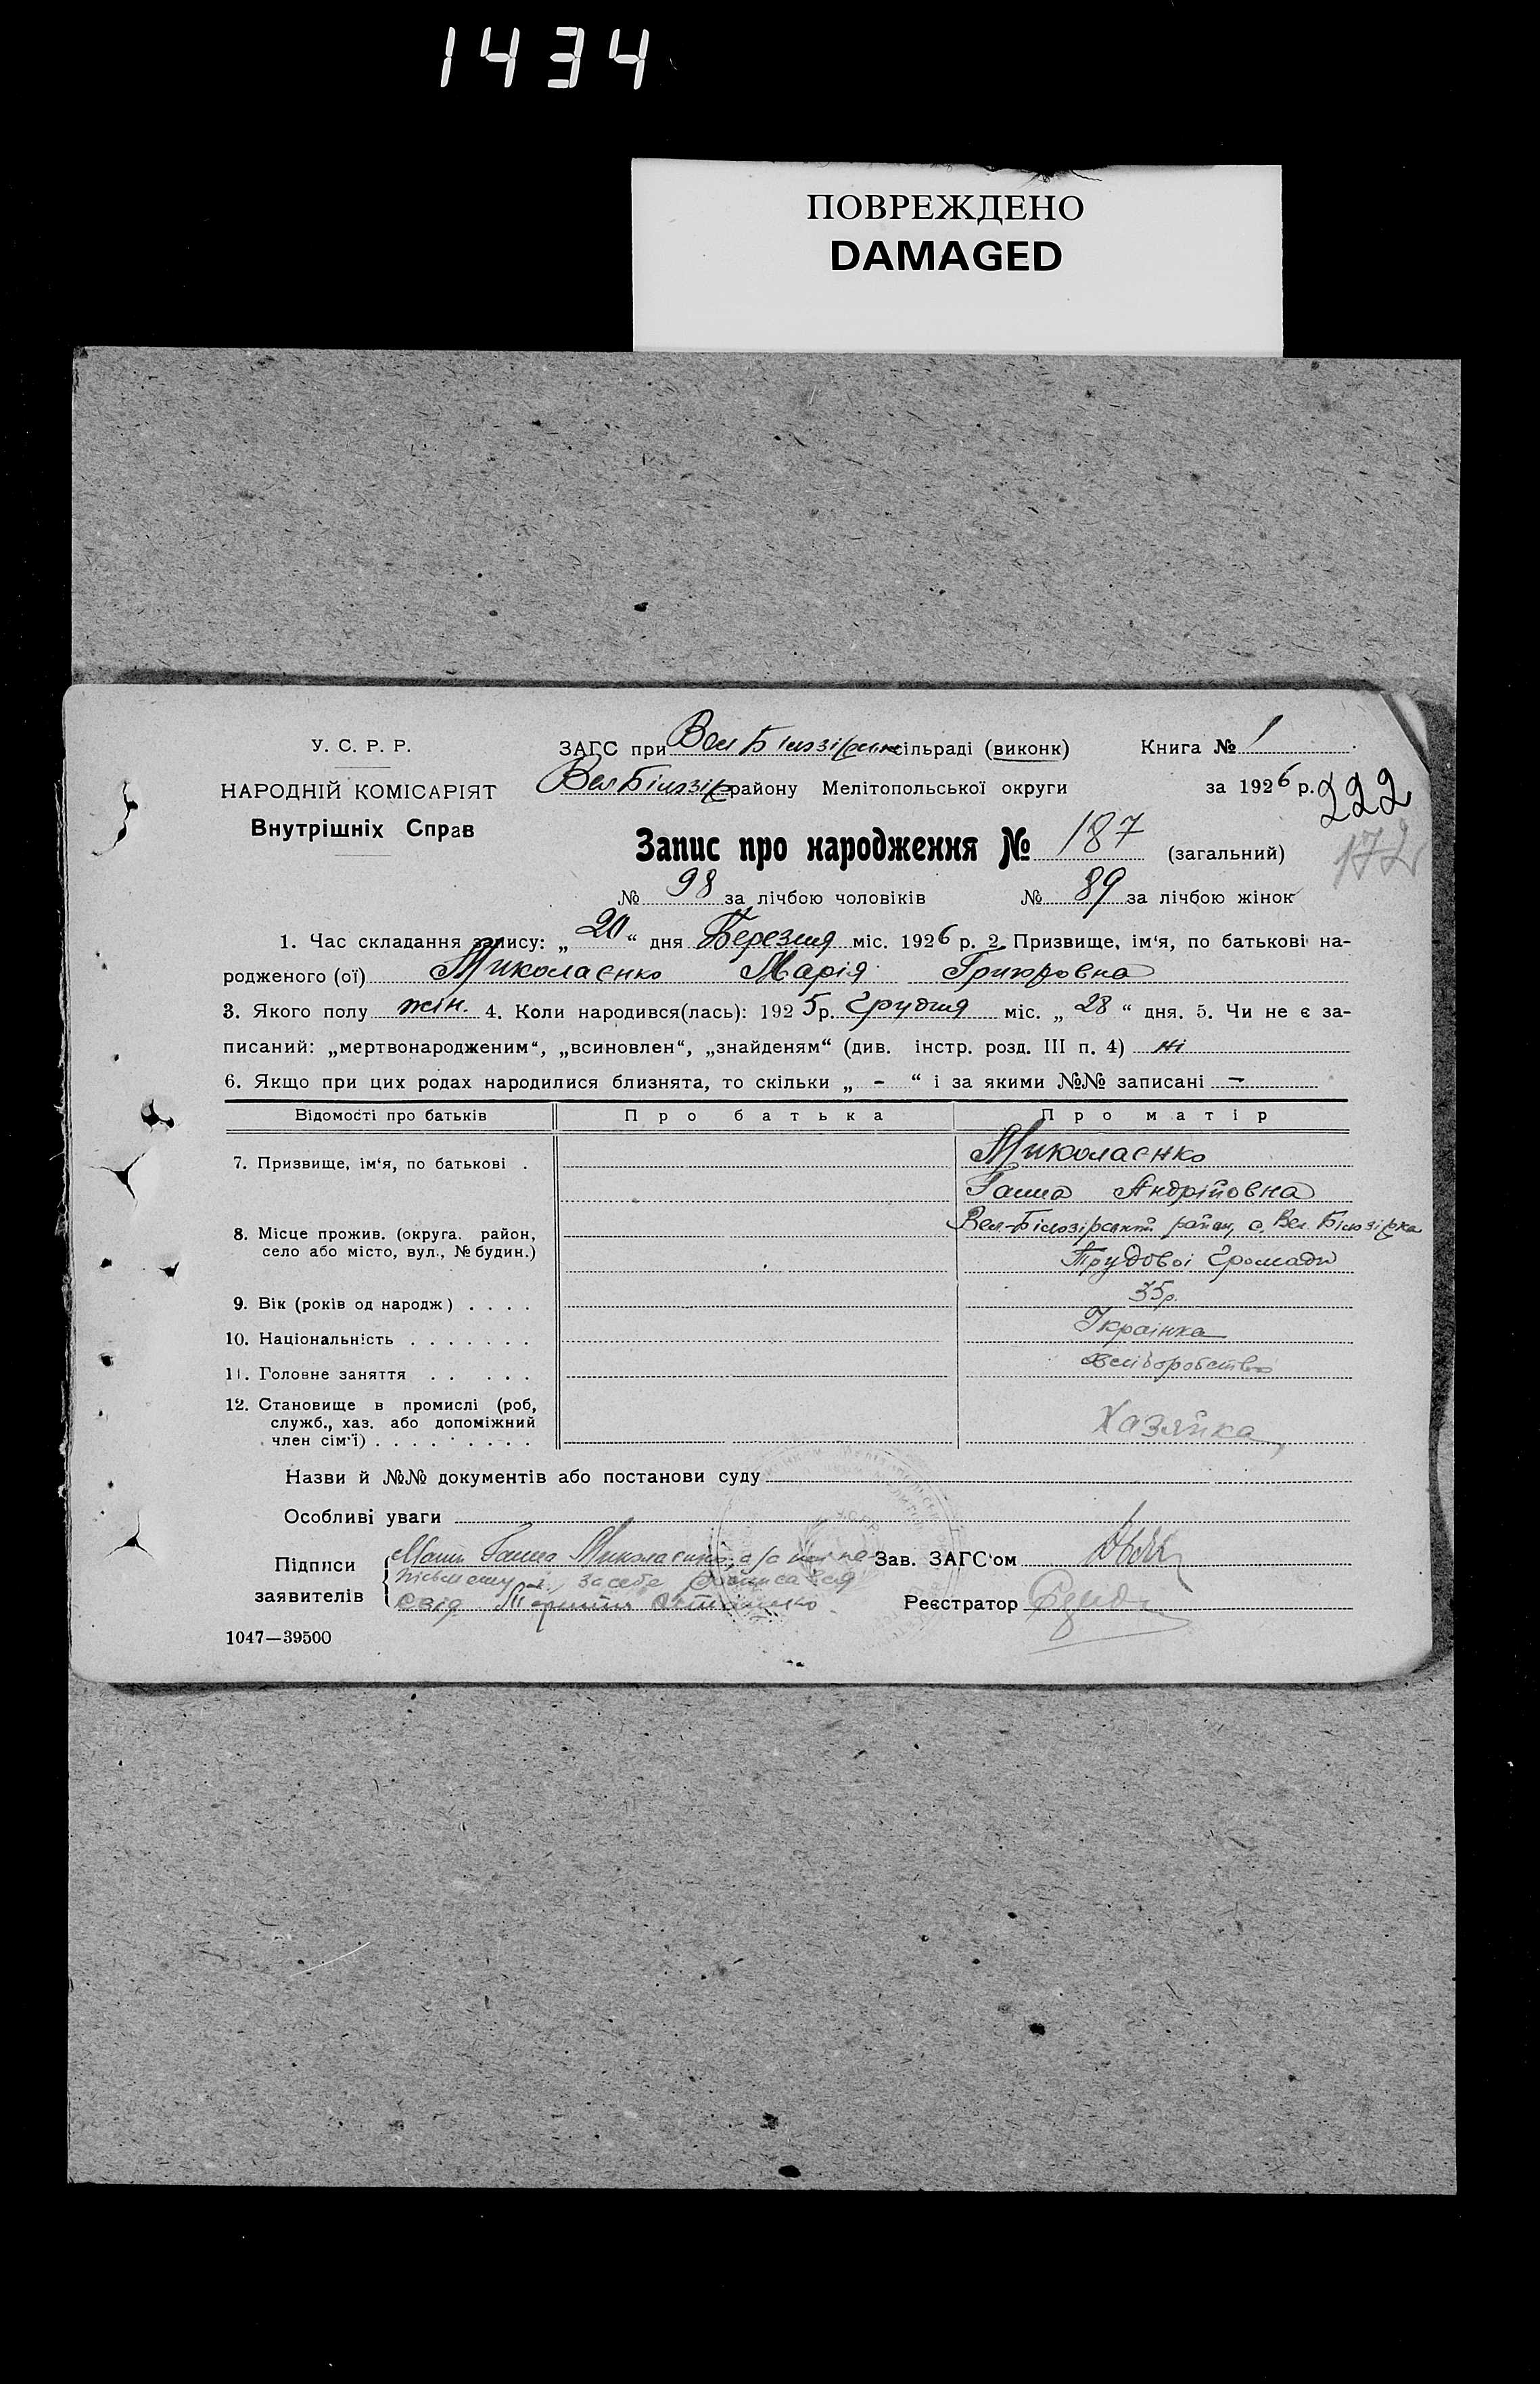 1434
ПОВРЕЖДЕНО
DAMAGED
У. С. Р. Р.
НАРОДНІЙ КОМІСАРІЯТ
Внутрішніх Справ
ЗАГС при Вел Білозірськ сільраді (виконк) Книга № 1
Вел Білозір району Мелітопольської округи за 1926 р.
222
172
Запис про народження № 187 (загальний)
№ 98 за лічбою чоловіків № 89 за лічбою жінок
1. Час складання запису: „20“ дня Березня міс. 1926 р. 2. Призвище, ім‘я, по батькові на-
родженого (ої) Миколаєнко Марія Григоровна
3. Якого полу жін. 4. Коли народився(лась): 1925 р. Грудня міс. „28“ дня. 5. Чи не є за-
писаний: „мертвонародженим“, „всиновлен“, „знайденям“ (див. інстр. розд. III п. 4) ні
6. Якщо при цих родах народилися близнята, то скільки „ - “ і за якими №№ записані -
Відомості про батьків Про батька Про матір
7. Призвище, ім‘я, по батькові . Миколаєнко
Ганна Андрійовна
8. Місце прожив. (округа. район,
село або місто, вул., № будин.)
Вел-Білозірський район, с. Вел. Білозірка
Трудової Громади
9. Вік (років од народж) . . . . 35р.
10. Національність . . . . . . . Українка
11. Головне заняття . . . . . Хліборобство
12. Становище в промислі (роб,
служб., хаз. або допоміжний
член сім‘ї) . . . . . . . . . Хазяйка
Назви й №№ документів або постанови суду
Особливі уваги
Підписи
заявителів
Мати Ганна Миколаєнко, а за
за себе росписався
свід
Зав. ЗАГС‘ом
Реєстратор
1047—39500